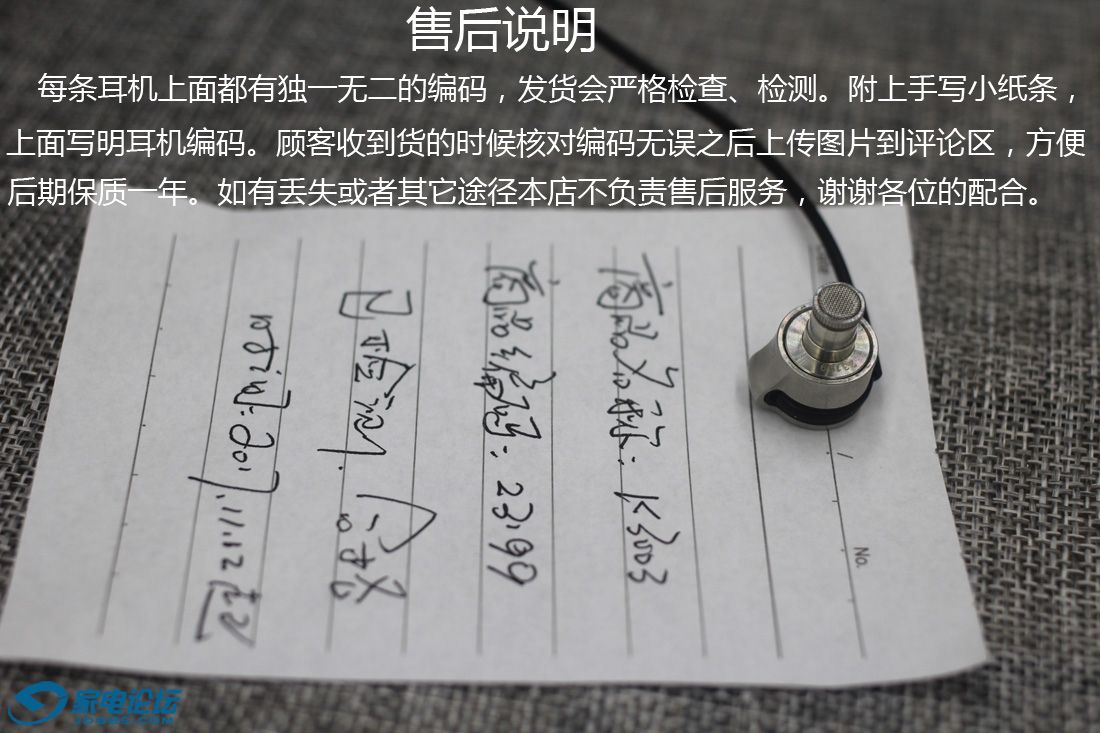 售后说明
每条耳机上面都有独一无二的编码，发货会严格检查、检测。附上手写小纸条，
上面写明耳机编码。顾客收到货的时候核对编码无误之后上传图片到评论区，方便
后期保质一年。如有丢失或者其它途径本店不负责售后服务，谢谢各位的配合。
No.
商品名称：K3003
商品编码：23199
已检测. 合格
时间：2017.11.12
家电论坛
JDBBS.COM